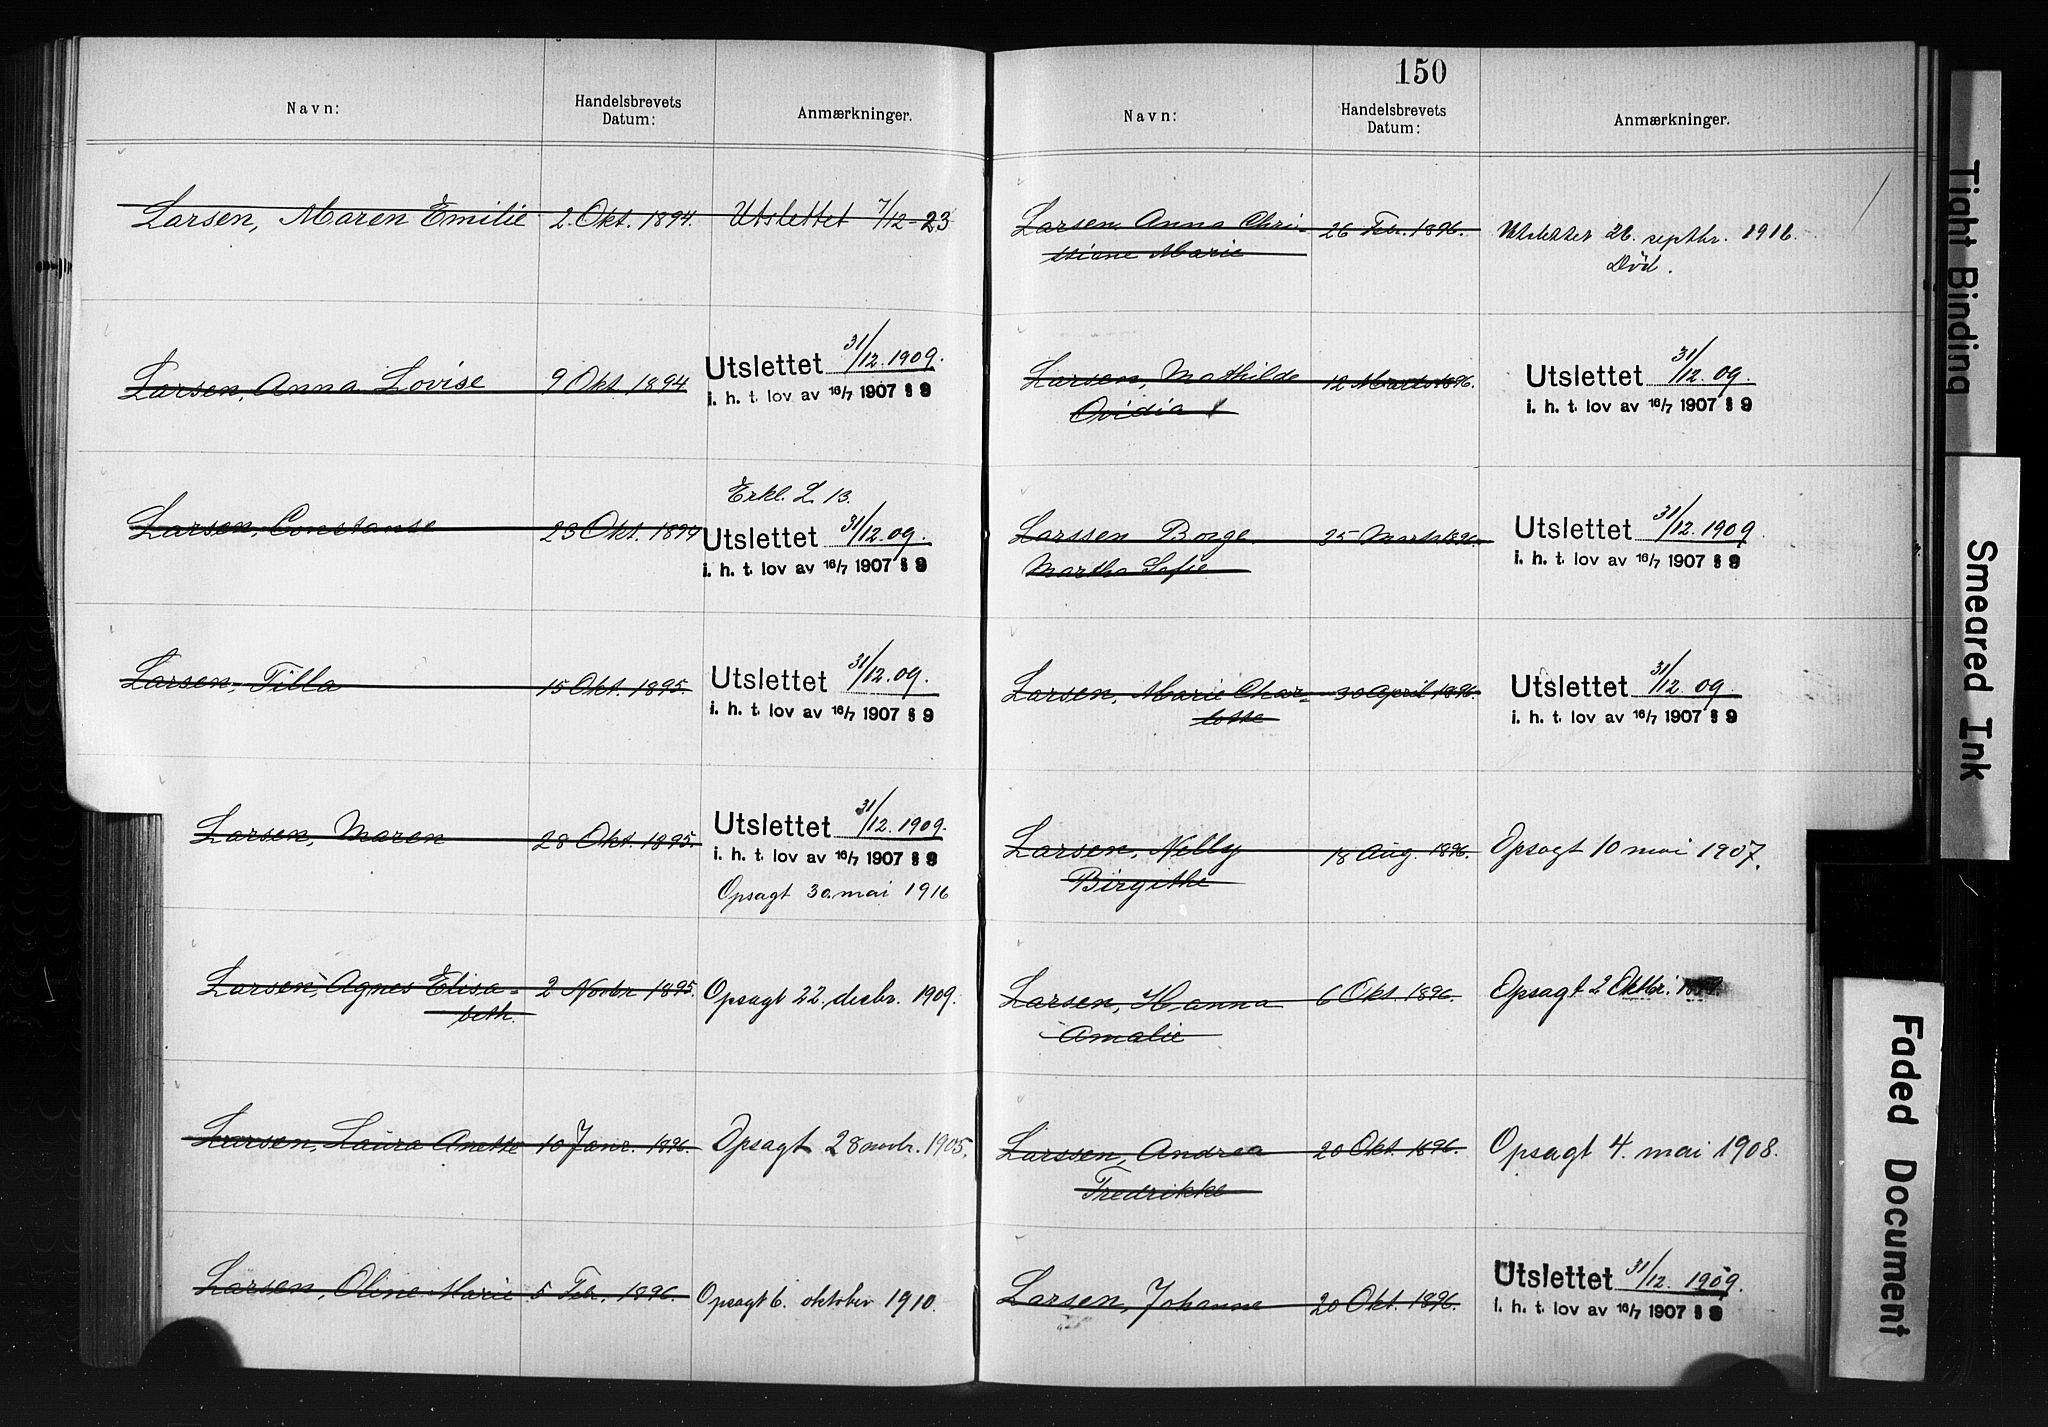 Navn: Handelsbrevets Datum: Anmærkninger.
Larsen, Maren Emilie 2. Okt. 1894. Utslettet 7/12-23
Larsen, Anna Lovise 9 Okt. 1894 Utslettet 31/12. 1909.
i. h. t. lov av 16/7 1907 § 9
Erkl. L. 13.
Larsen, Constanse 23 Okt. 1894 Utslettet 31/12. 09.
i. h. t. lov av 16/7 1907 § 9
Larsen, Tilla 15 Okt. 1895. Utslettet 31/12. 09.
i. h. t. lov av 16/7 1907 § 9
Larsen, Maren 28 Okt. 1895. Utslettet 31/12. 1909.
i. h. t. lov av 16/7 1907 § 9
Opsagt 30. mai 1916
Larsen, Agnes Elisa- 2 Novbr 1895. Opsagt 22. decbr. 1909.
beth.
Larsen, Laura Anette 10 Janr. 1896. Opsagt 28 novbr. 1905.
Larsen, Oline Marie 5 Feb. 1896. Opsagt 6. oktober 1910.
150
Navn: Handelsbrevets Datum: Anmærkninger.
Larsen, Anna Chri- 26 Feb. 1896. Utslettet septbr. 1916.
stiane Marie Død.
Larsen, Mathilde 12 Marts 1896. Utslettet 31/12. 09.
Ovidia i. h. t. lov av 16/7 1907 § 9
Larssen Borge 25 Marts 1896. Utslettet 31/12. 1909.
Martha Sofie i. h. t. lov av 16/7 1907 § 9
Larsen, Marie Char- 30 April 1896. Utslettet 31/12 09
lotte i. h. t. lov av 16/7 1907 § 9
Larsen, Nelly 18 Aug. 1896. Opsagt 10 mai 1907.
Birgithe
Larsen, Hanna 6 Okt. 1896. Opsagt 2 Oktbr.
Amalie
Larssen, Andrea 20 Okt. 1896. Opsagt 4. mai 1908.
Fredrikke
Larsen, Johanne 20 Okt. 1896. Utslettet 31/12. 1909.
i. h. t. lov av 16/7 1907 § 9
Tight Binding
Smeared Ink
Faded Document